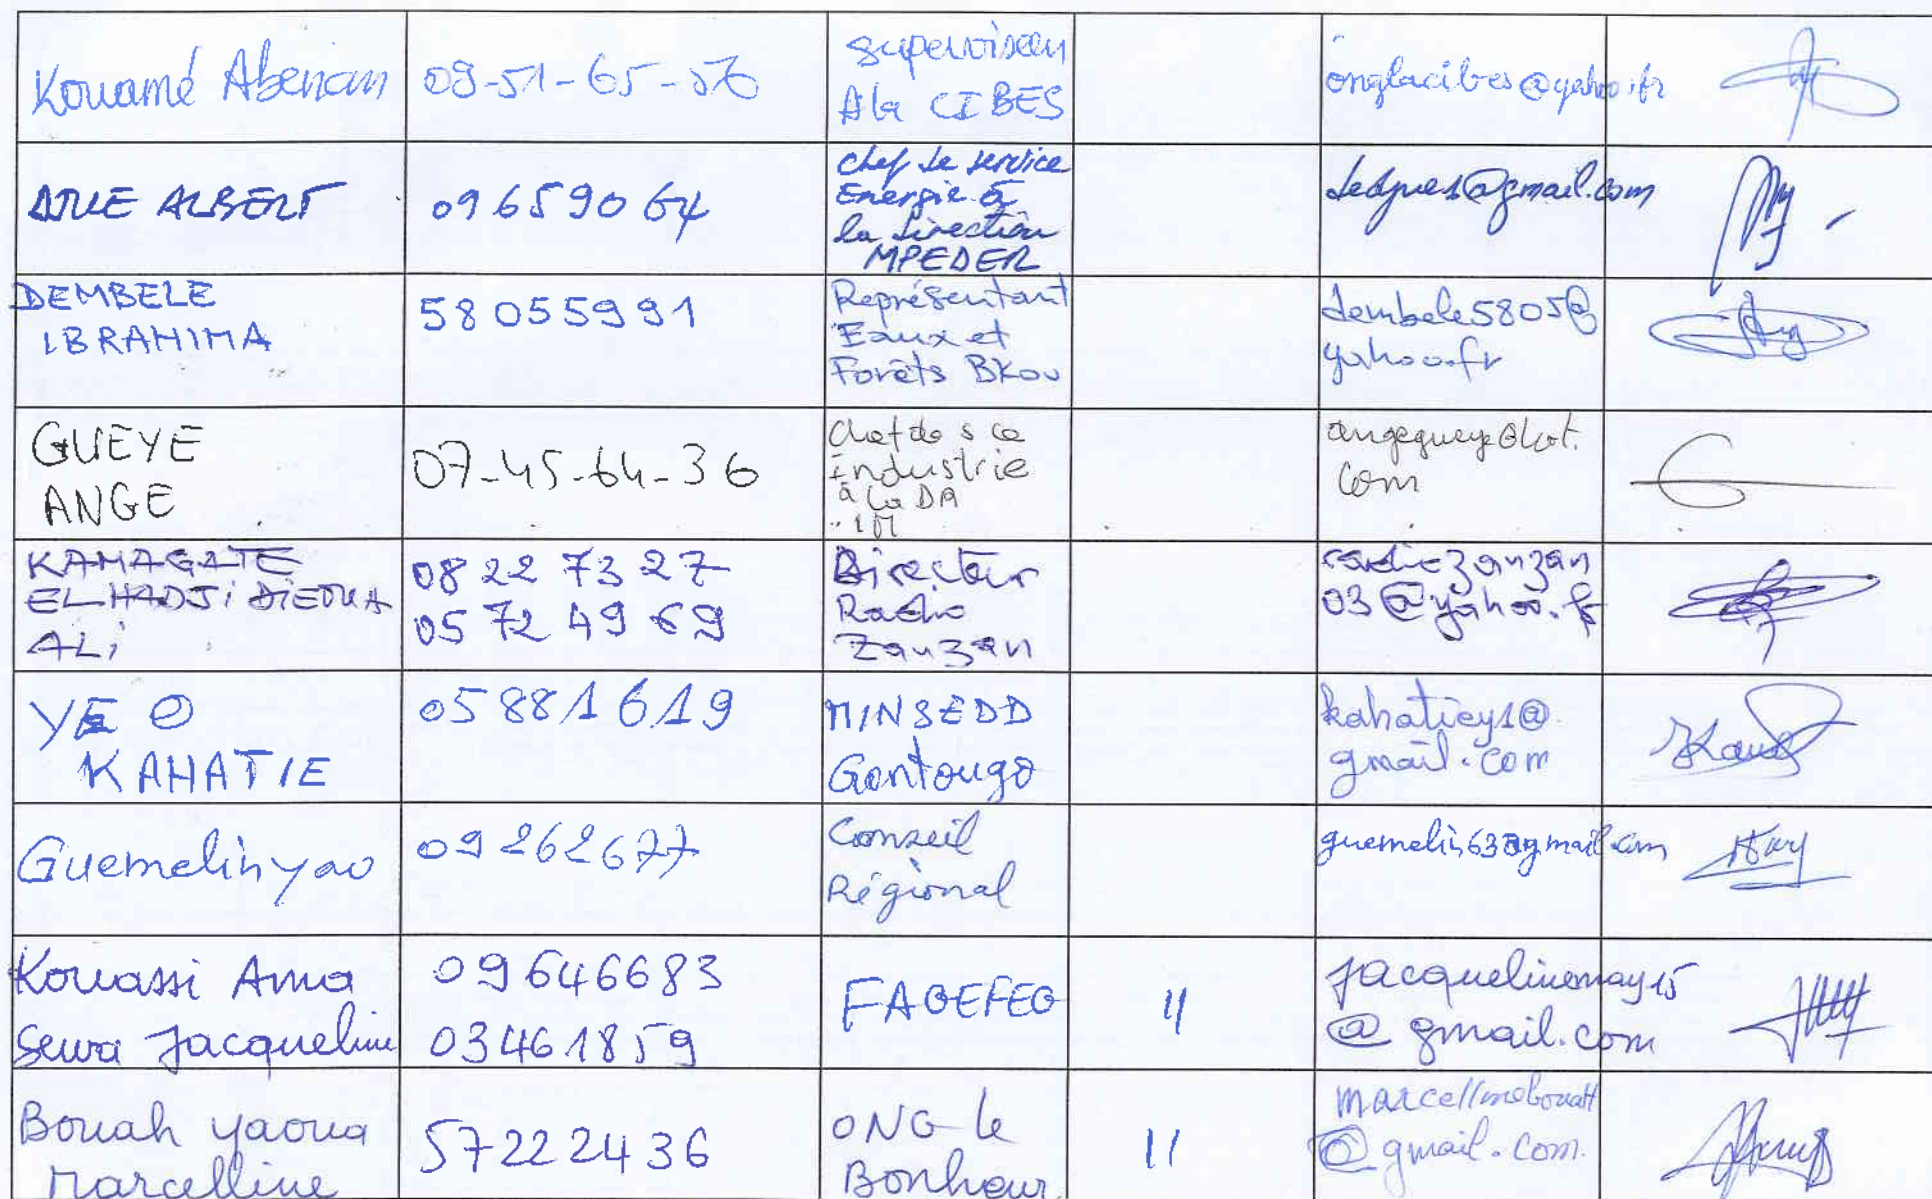 Kouamé Abenan
09-51-65-56
superviseur
A la CIBES
onglacibes@yahoo.fr
ALBERT
09659064
chef de service
Energie à
la direction
MPEDER
@gmail.com
DEMBELE
IBRAHIMA
58055991
Représentant
Eaux et
Forêts Bkou
dembele5805@
yahoo.fr
GUEYE
ANGE
07-45-64-36
Chef de sce
industrie
à la DR
angegueye@hot.
com
KAMAGATE
ELHADJi
ALi
08 22 73 27
05 72 49 69
Directeur
Radio
Zanzan
radiozanzan
03@yahoo.fr
YEO
KAHATIE
05881619
MINSEDD
Gontougo
kahatiey1@
gmail.com
Guemelin yao
09262677
Conseil
Régional
guemelin63@gmail.com
Kouassi Ama
Sewa Jacqueline
09646683
03461859
FAGEFEG
11
jacquelinemay15
@gmail.com
Bouah yaoua
Marcelline
57222436
ONG le
Bonheur
11
marcellinebouah
@gmail.com.